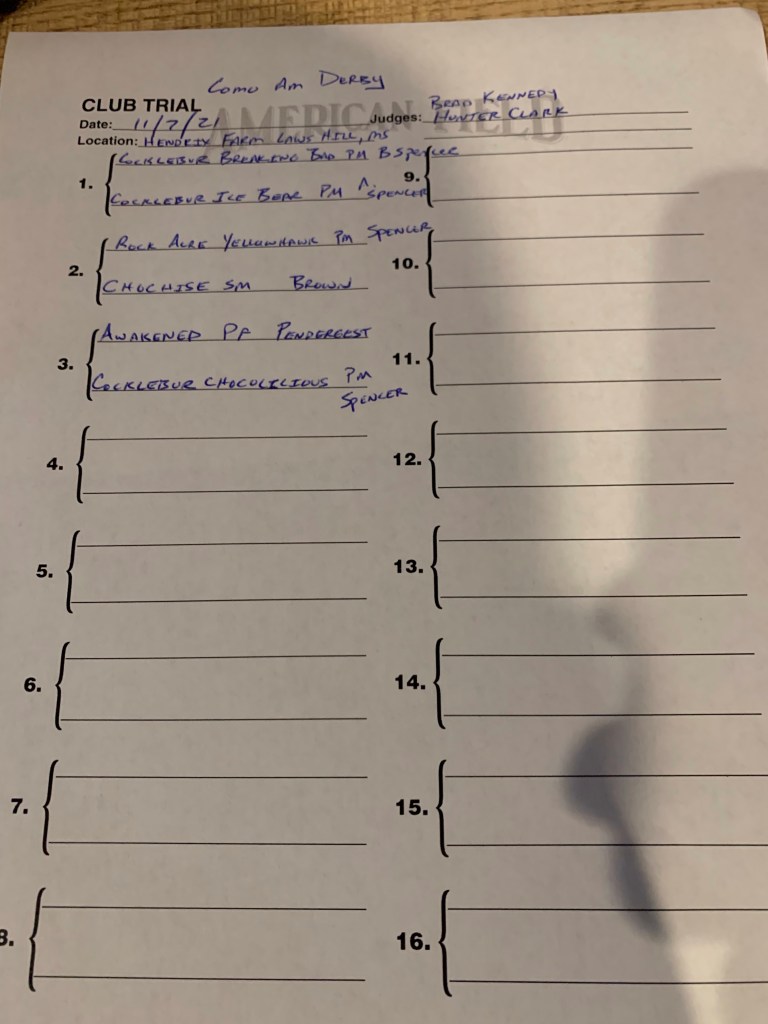 Como Am Derby
CLUB TRIAL
AMERICAN FIELD
Date: 11/7/21
Judges: Brad Kennedy
Hunter Clark
Location: Hendrix Farm Laws Hill, MS
1. Cocklebur Breaking Bad PM B Spencer
Cocklebur Ice Bear PM Spencer
2. Rock Acre Yellowhawk PM Spencer
Chochise SM Brown
3. Awakened PF Pendergest
Cocklebur Chocolicious PM
Spencer
4.
5.
6.
7.
8.
9.
10.
11.
12.
13.
14.
15.
16.